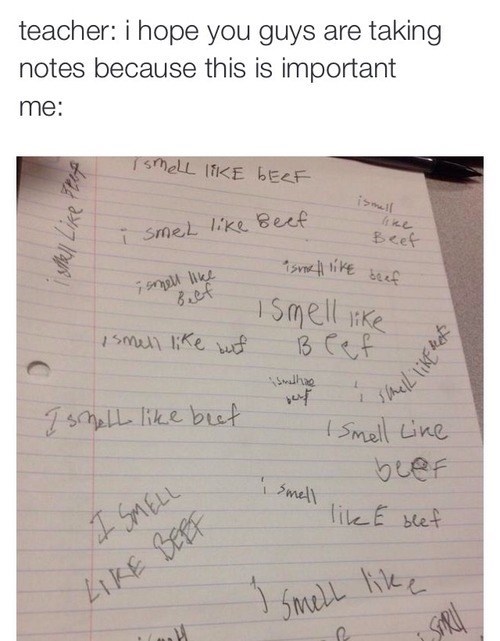 teacher: i hope you guys are taking
notes because this is important
me:
I smeLL lIKE bEEF
i smell Like Beef
ismell
like
Beef
i smeL like Beef
i smell like beef
i smell like
Beef
I Smell like
Beef
I smell like beef
i smell like beef
ismell like
beef
I smeLL like beef
I Smell Like
beeF
i smell
likE beef
I SMELL
LIKE BEEF
I SmeLL like